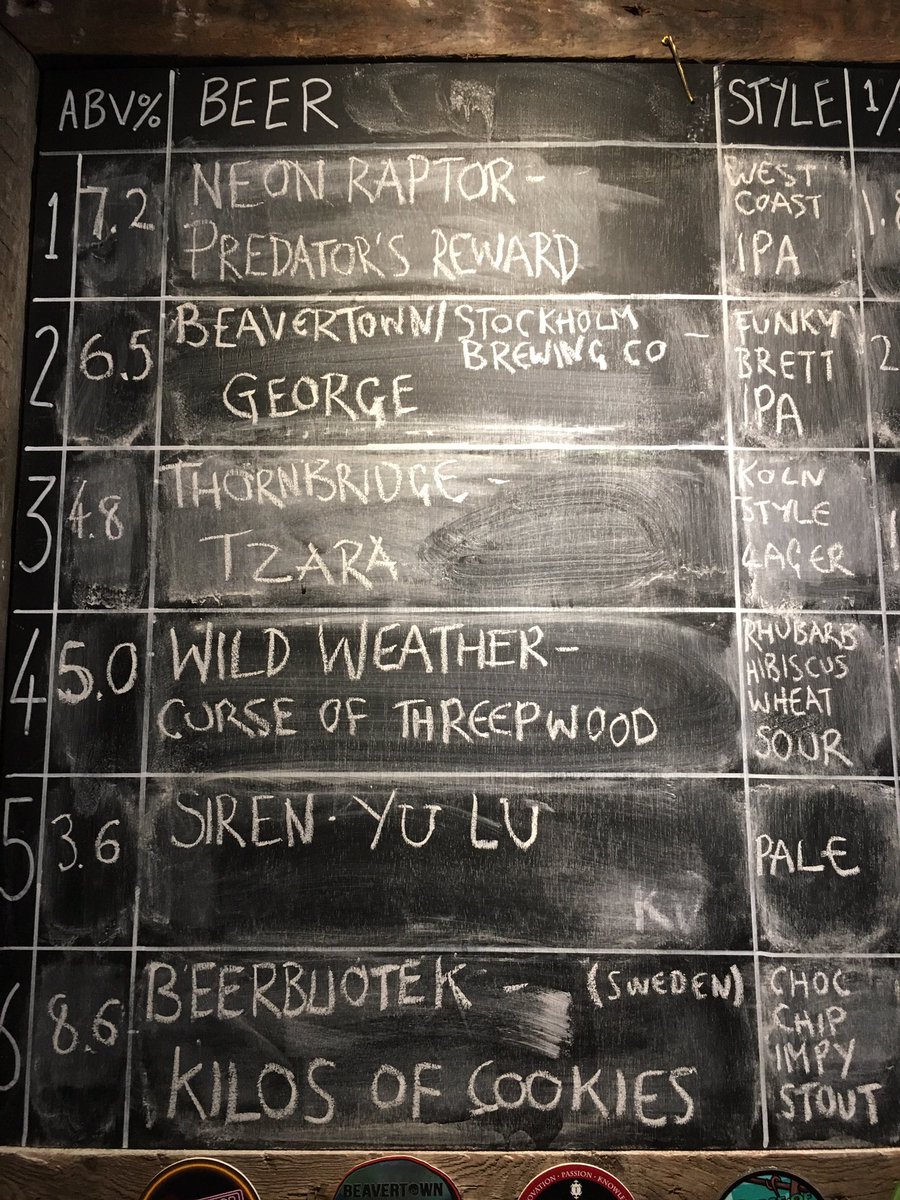 ABV% BEER STYLE 1/
1 7.2 NEON RAPTOR - WEST
COAST
PREDATOR'S REWARD IPA
2 6.5 BEAVERTOWN/STOCKHOLM BREWING CO - FUNKY
BRETT
GEORGE IPA
3 4.8 THORNBRIDGE - KOLN
STYLE
TZARA LAGER
4 5.0 WILD WEATHER - RHUBARB
HIBISCUS
CURSE OF THREEPWOOD WHEAT
SOUR
5 3.6 SIREN - YU LU PALE
6 8.6 BEERBLIOTEK - (SWEDEN) CHOC
CHIP
KILOS OF COOKIES IMPY
STOUT
BEAVERTOWN
PASSION